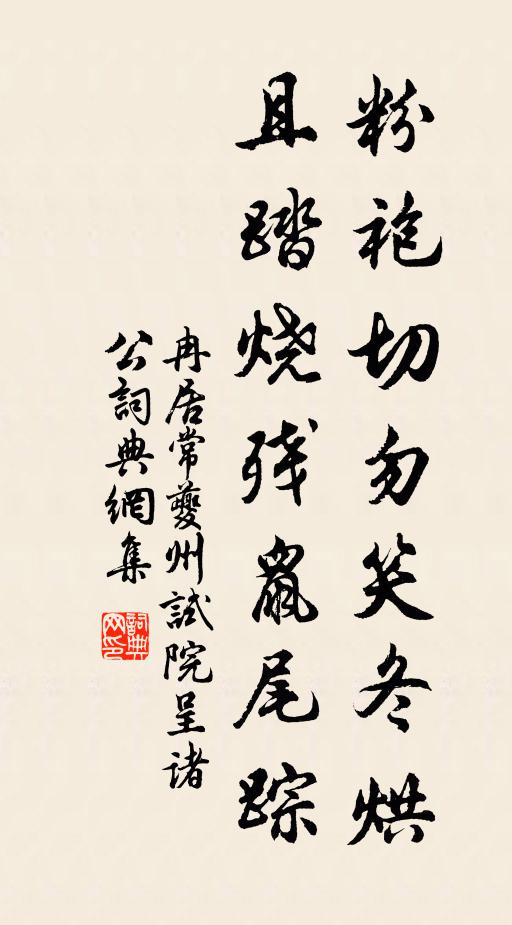 粉袍切勿笑冬烘
且踏烧残鼠尾踪
冉居常夔州試院呈诸
公詞典網集
詞典网印